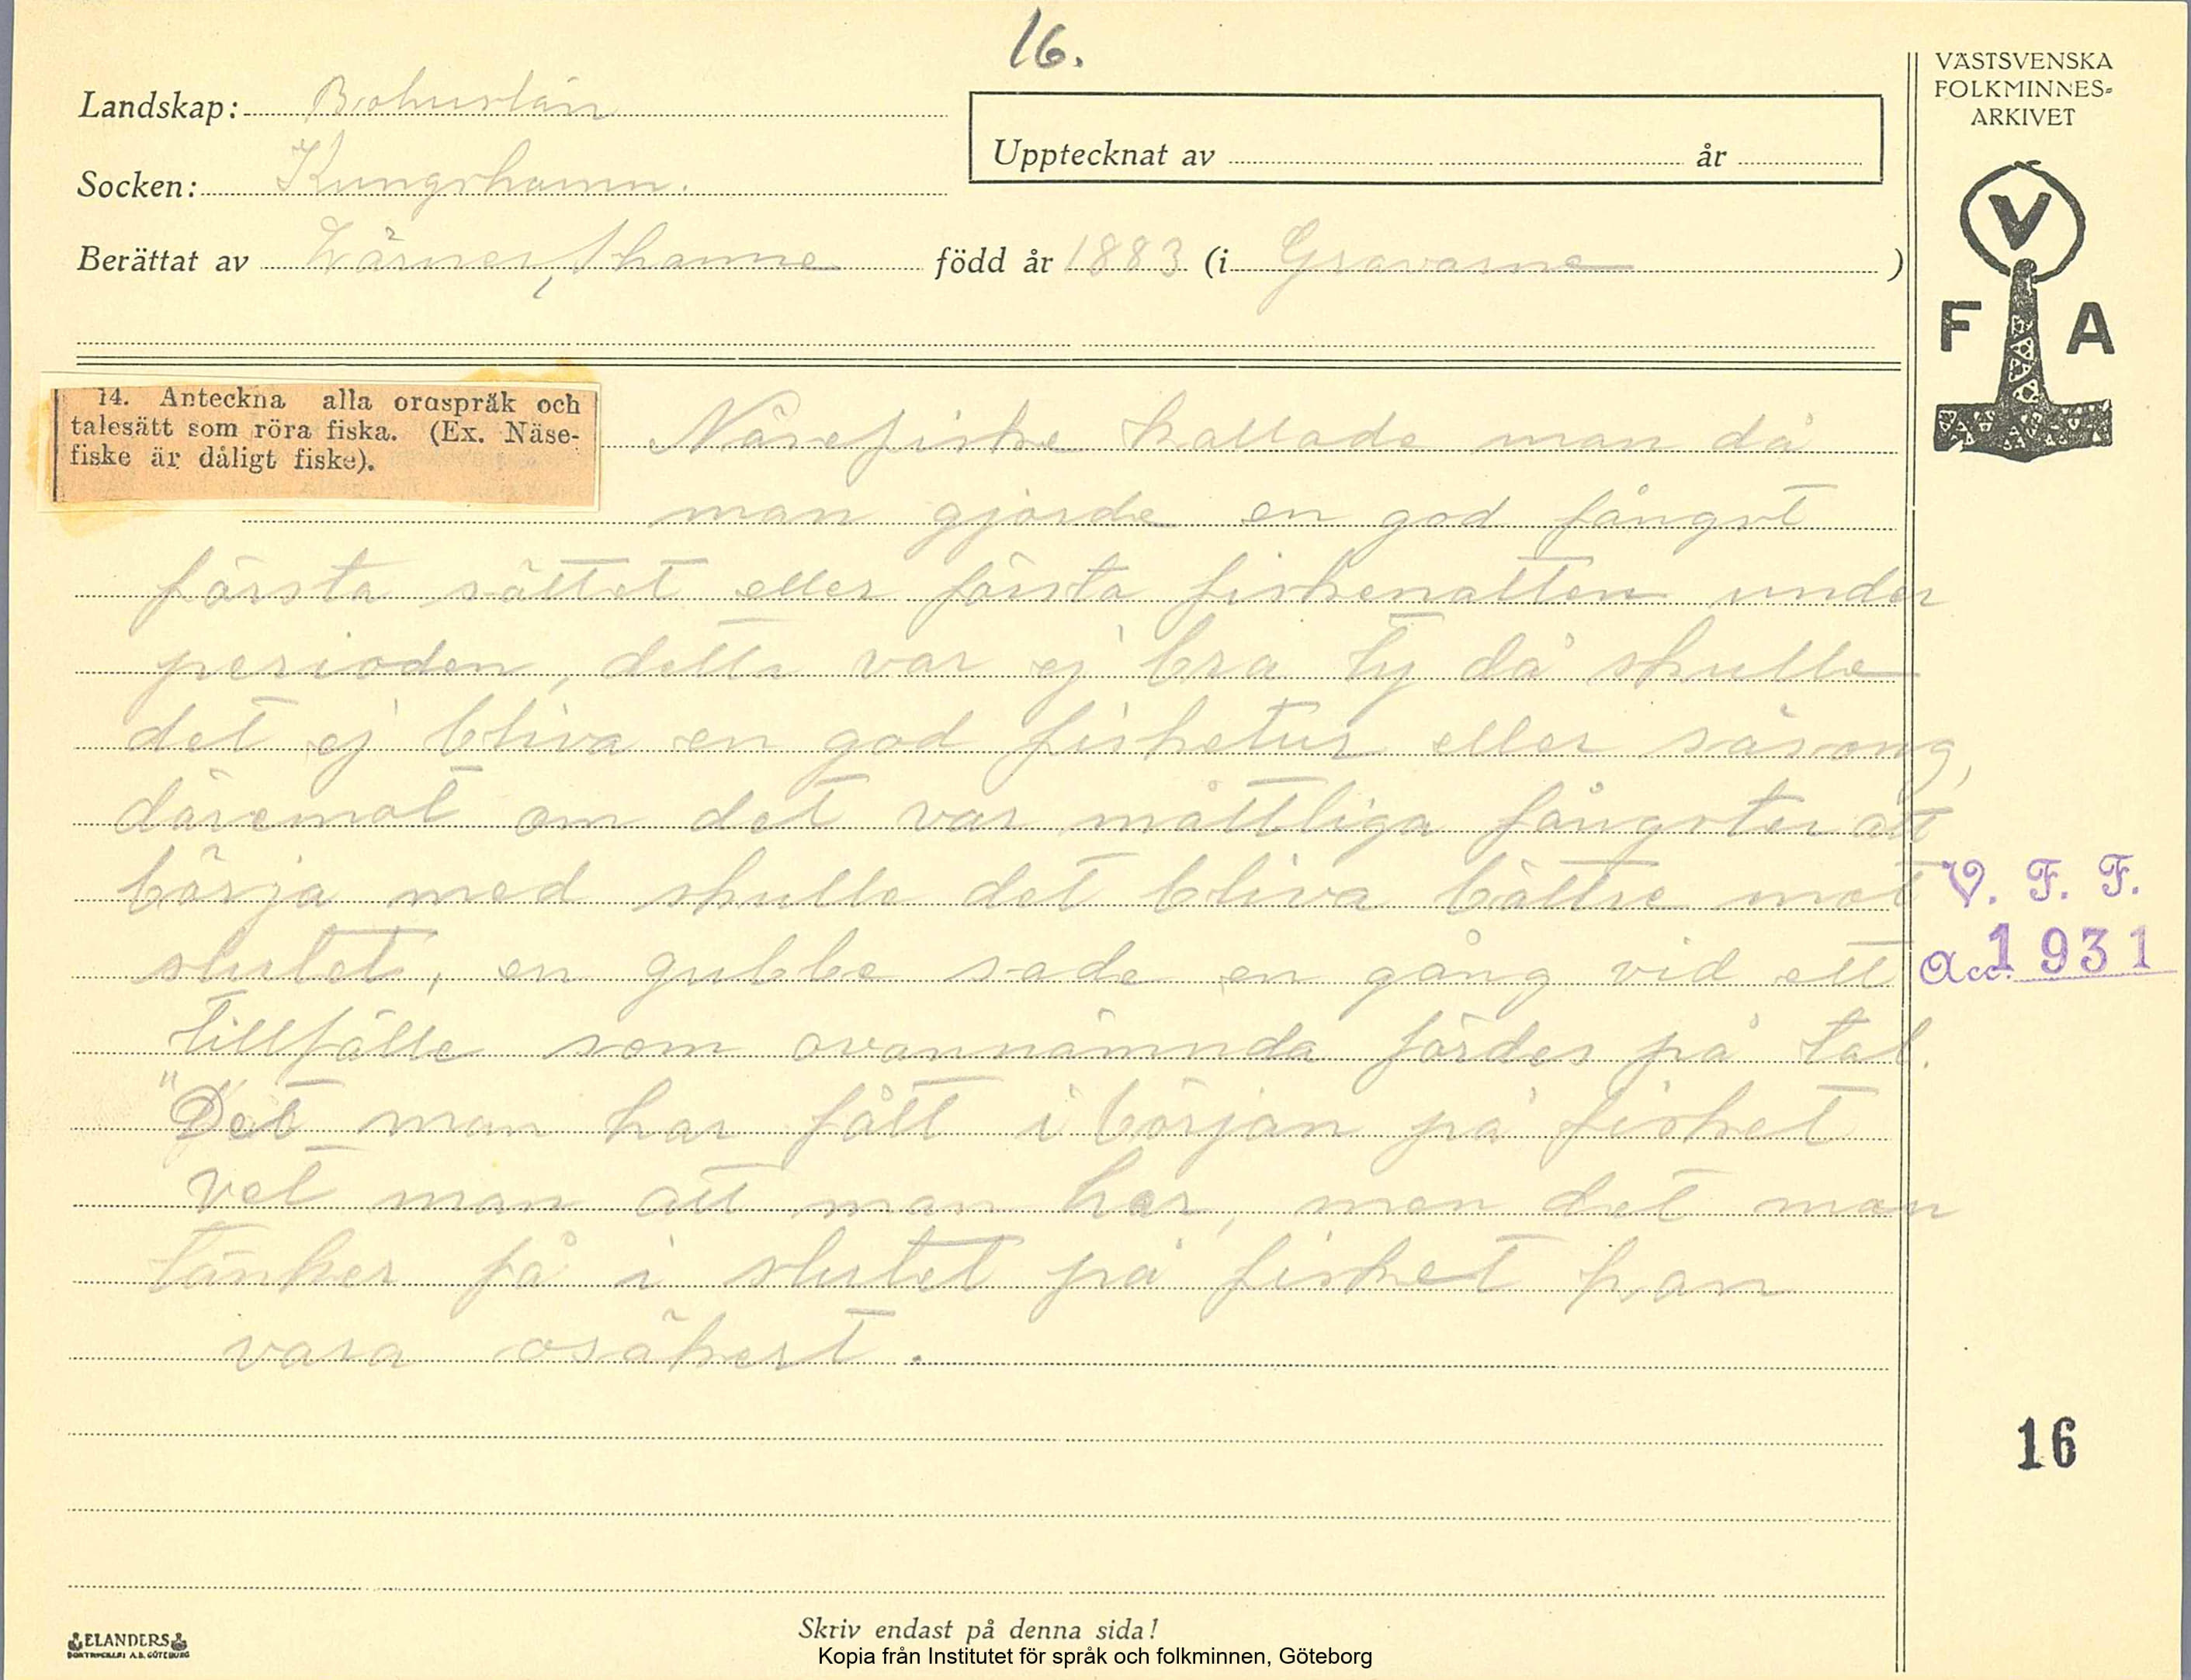 16.
VÄSTSVENSKA
FOLKMINNES=
ARKIVET
Landskap: Bohuslän
Upptecknat av år
Socken: Kungshamn.
Berättat av Wärner, född år 1883 (i Gravarne )
V
F A
14. Anteckna alla ordspråk och
talesätt som röra fiska. (Ex. Näse-
fiske är dåligt fiske).
Näsefiske kallade man då
man gjorde en god fångst
första sättet eller första fiskenatten under
perioden, detta var ej bra ty då skulle
det ej bliva en god fisketur eller säsong,
däremot om det var måttliga fångster att
börja med skulle det bliva bättre mot
slutet, en gubbe sade en gång vid ett
tillfälle som ovannämnda fördes på tal.
"Det man har fått i början på fisket
vet man att man har, men det man
tänker få i slutet på fisket kan
vara osäkert.
V. F. F.
Acc. 1931
16
Skriv endast på denna sida!
ELANDERS
BOKTRYCKERI A.B. GÖTEBORG
Kopia från Institutet för språk och folkminnen, Göteborg